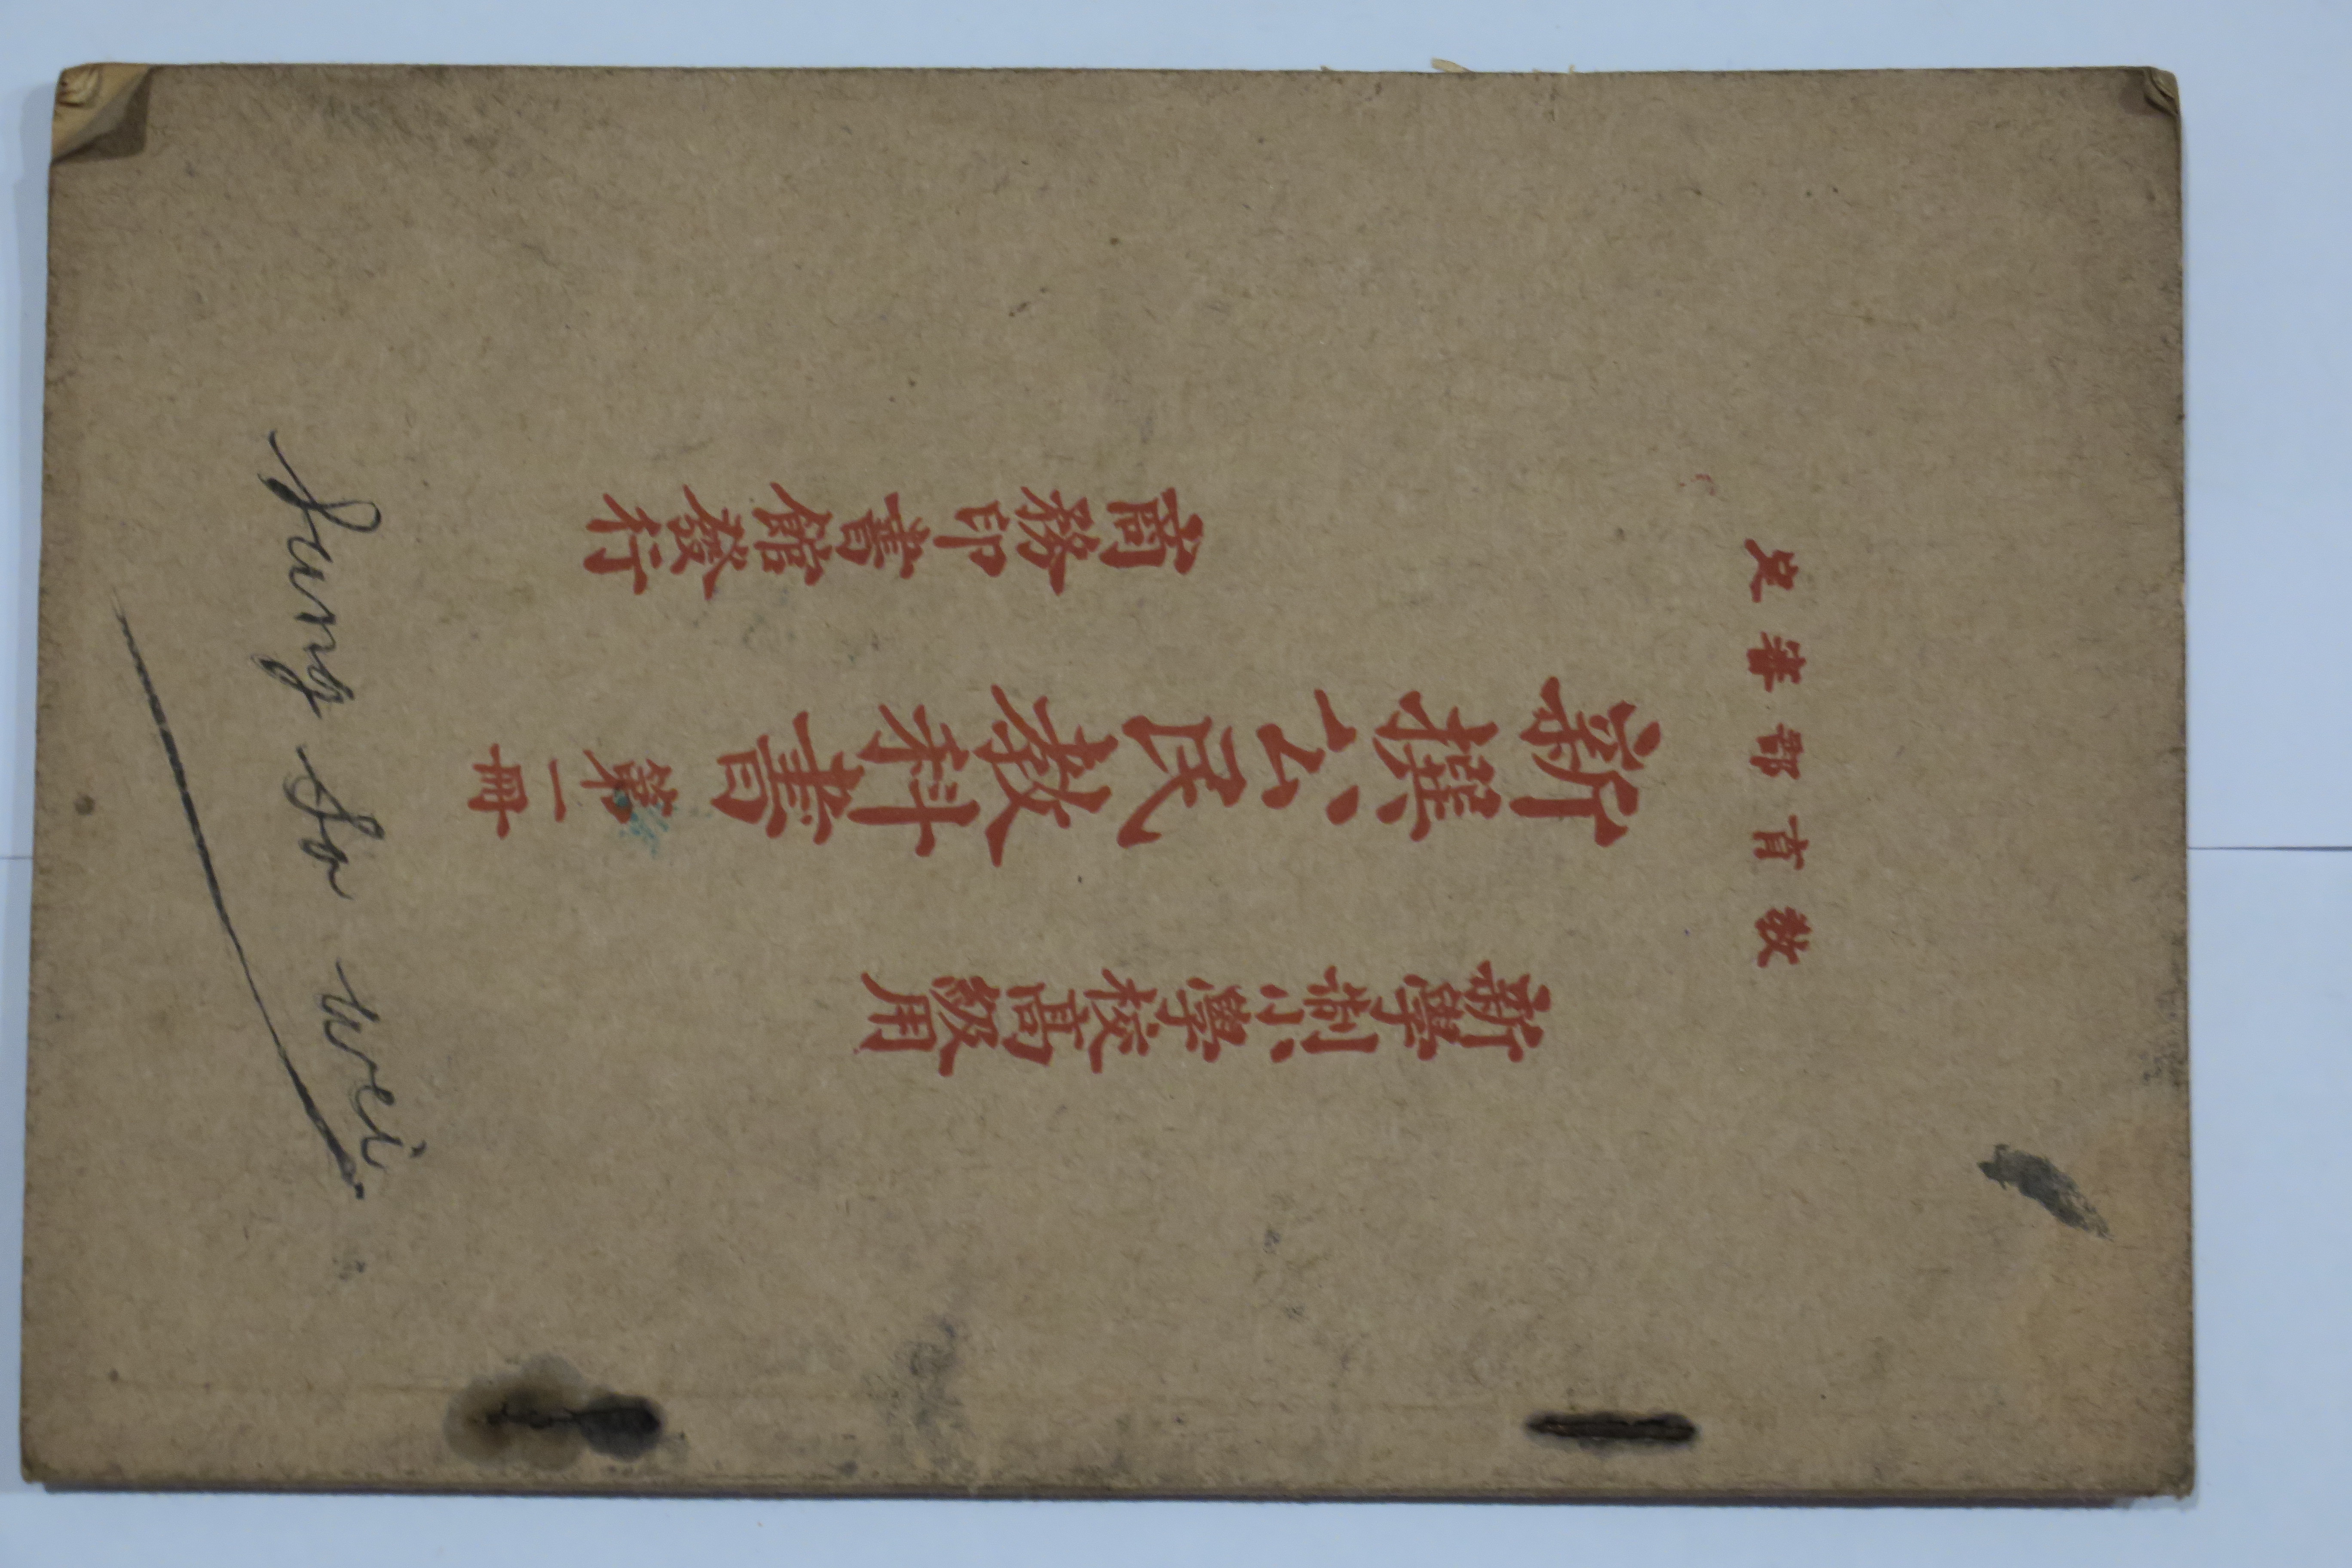 教育部審定
新學制小學校高級用
新撰公民教科書 第一冊
商務印書館發行
Sung So wei